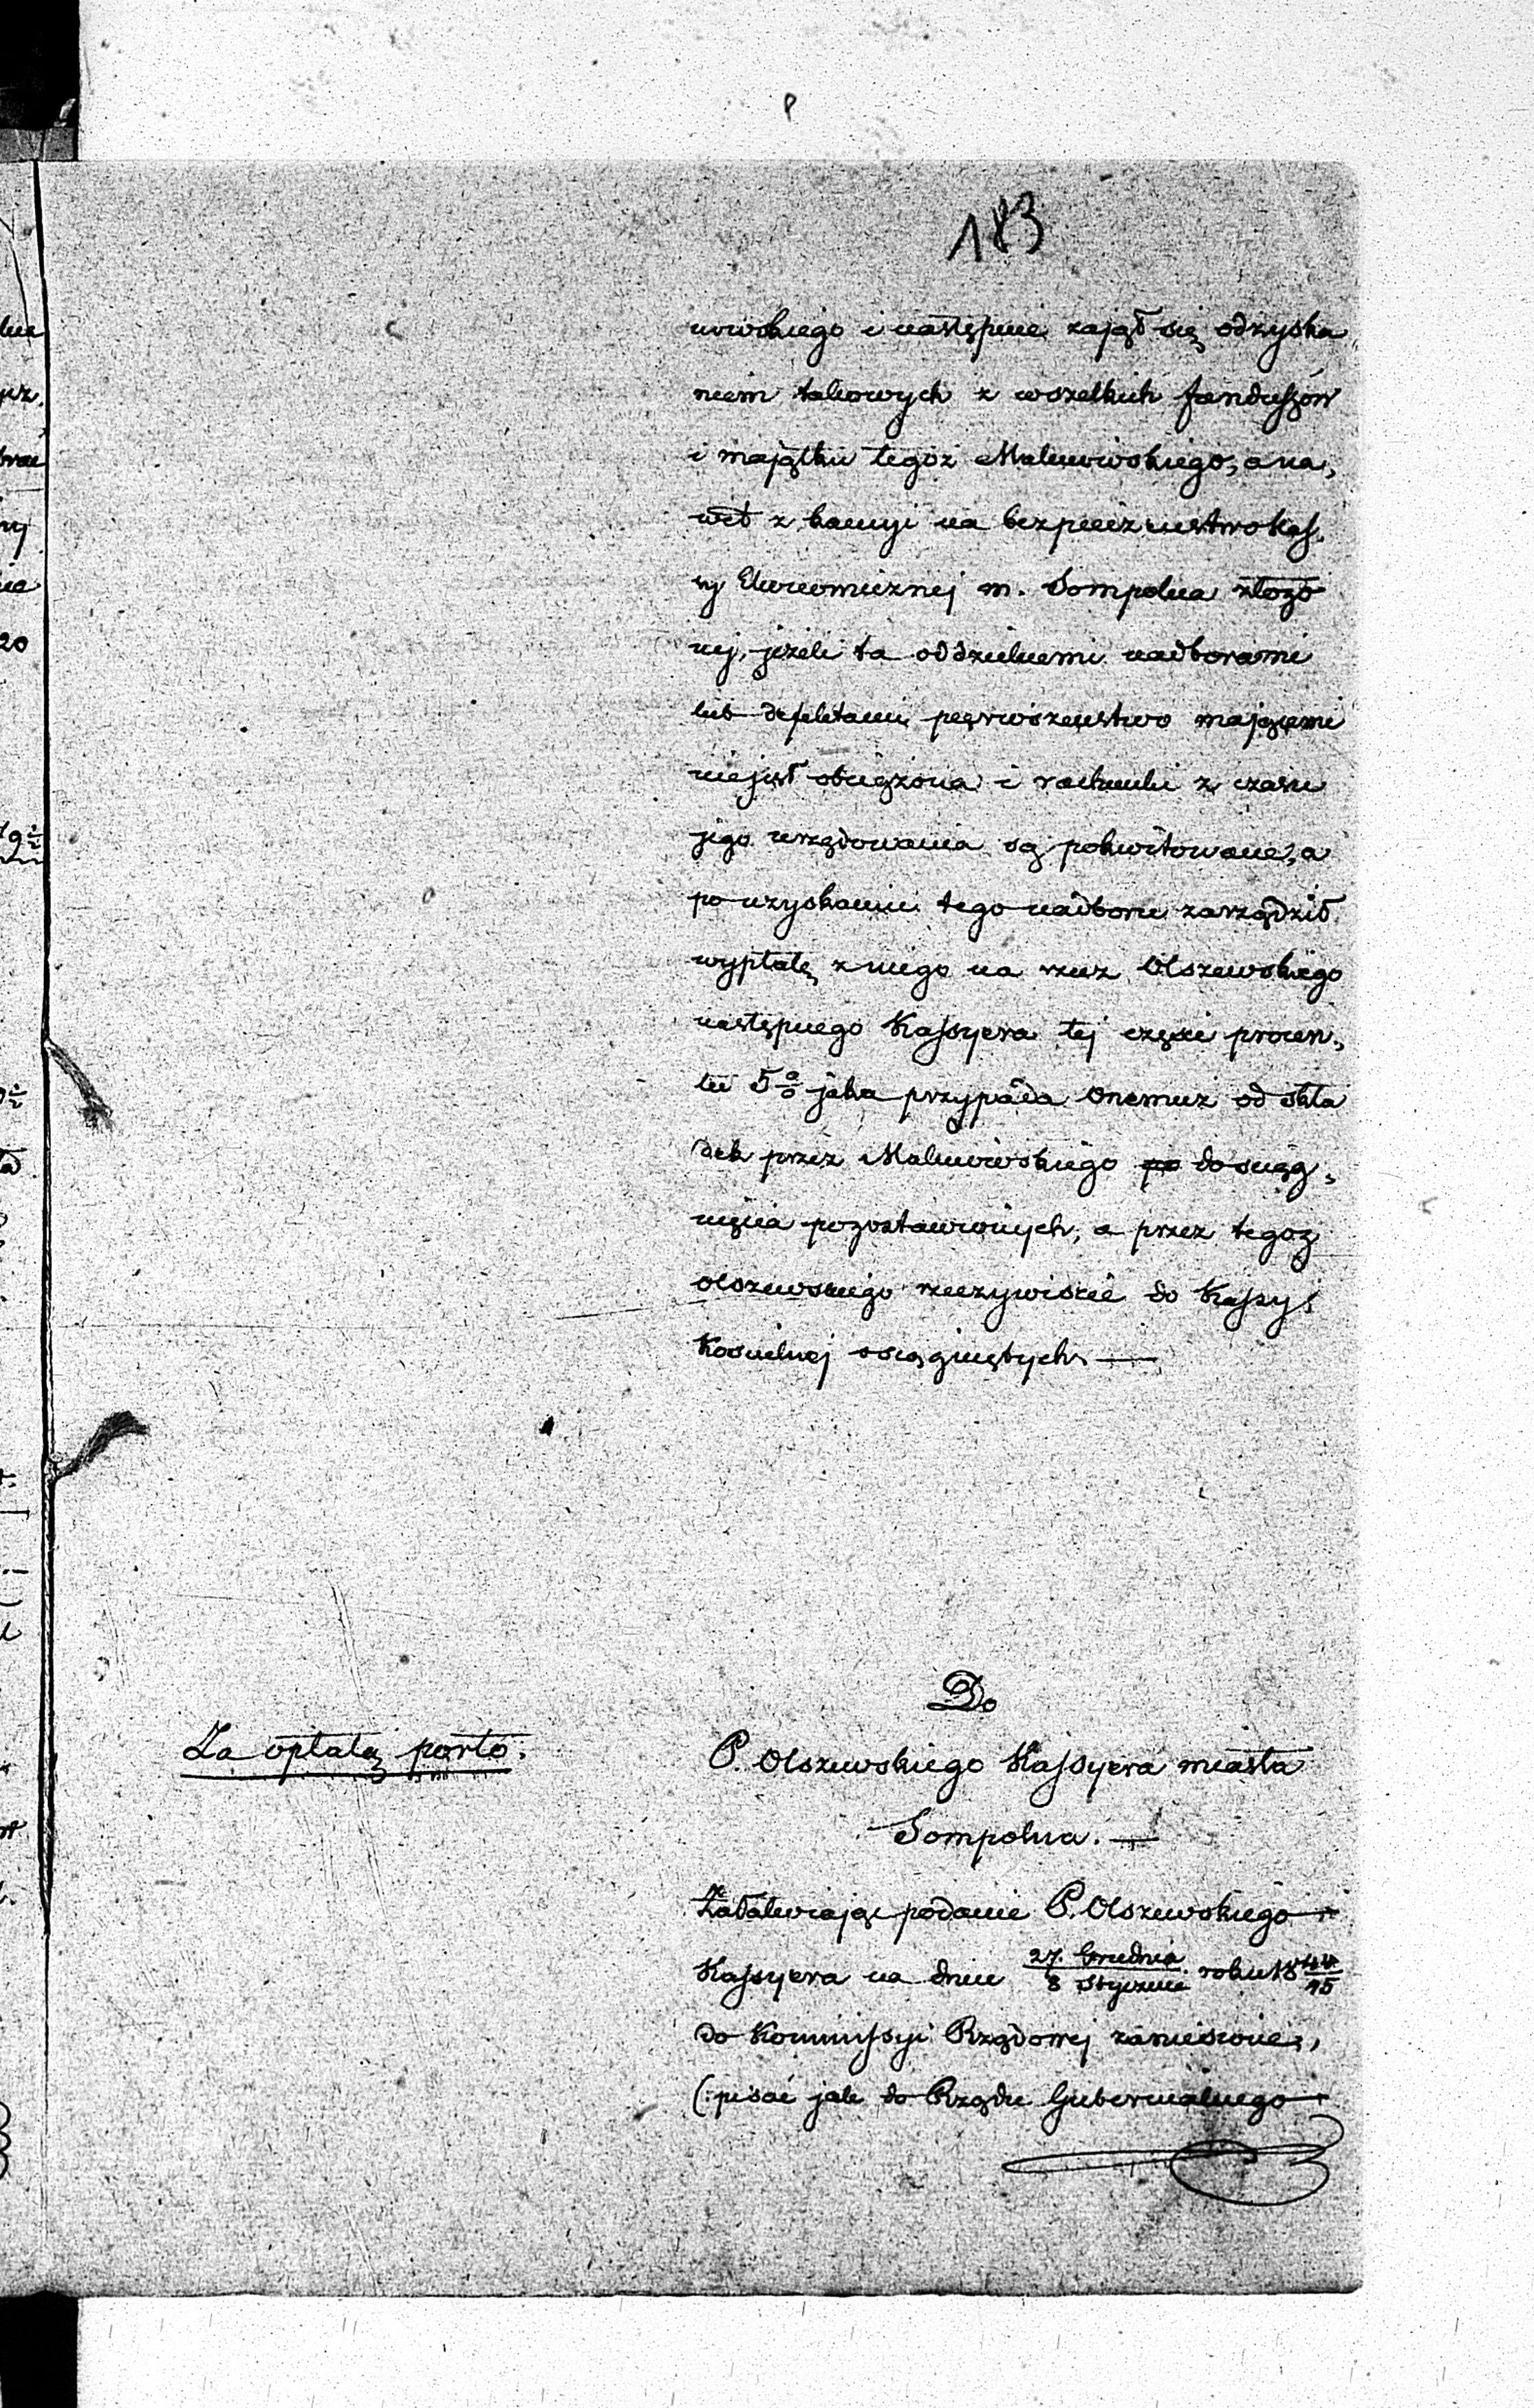 183
nowskiego i następnie zajął się odzyska
niem takowych z wszelkich funduszów
i majątku tegoż Malinowskiego, a na„
wet z kaucyi na bezpieczeństwo Kas„
sy Ekonomicznej m. Sompolna złożo
nej, jeżeli ta oddzielnemi nadborami
lub defektami pierwszeństwo mającemi
niejest obciążona i rachunki z czasu
jego urzędowania są pokwitowane, a
po uzyskaniu tego nadboru zarządził
wypłatę z niego na rzecz Olszewskiego
następnego Kassyera tej części procen„
tu 5% jaka przypada onemuż od skła
dek przez Malinowskiego po do ściąg„
nięcia pozostawionych, a przez tegoż
Olszewskiego rzeczywiście do Kassy
Kościelnej ściągniętych. —
Do
Za opłatą porto.
P. Olszewskiego Kassyera miasta
Sompolna. —
Załatwiając podanie P. Olszewskiego
Kassyera na dniu 27. Grudnia / 8 Stycznia roku 1844/45
do Kommissyi Rządowej zaniesione,
(: pisać jak do Rządu Gubernialnego